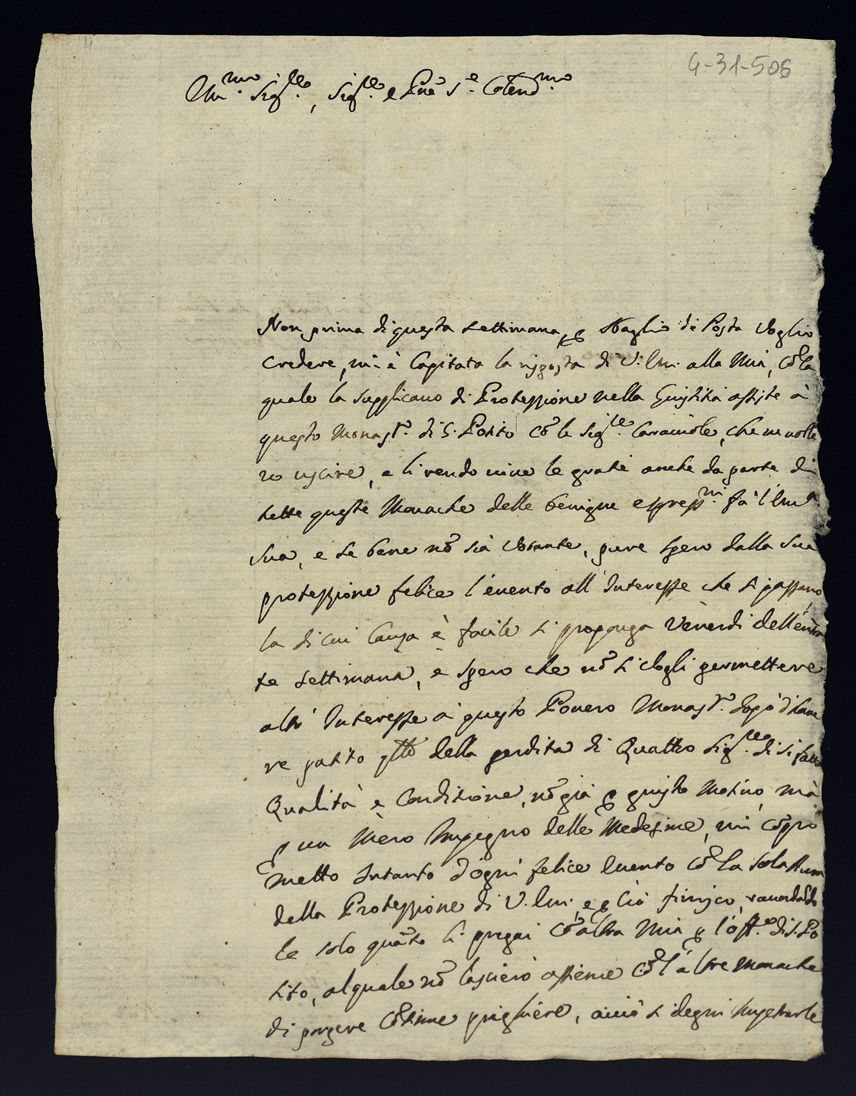 4-31-506
Ill.mo Sig.re, Sig.re e Pñe S.e Colend.mo
Non prima di questa settimana, p sbaglio di Posta voglio
credere, mi è capitata la risposta di V. Ill. alla mia, cõ la
quale la supplicavo di Protezzione nella Giustitia assiste à
questo Monast.o di S. Potito cõ le Sig.re Caracciole, che ne volle
ro uscire, e li rendo vive le gratie anche da parte di
tutte queste Monache delle benigne espress.ni fà l'Ill.ma
Sua, e se bene nõ sia votante, pure spero dalla Sua
protezzione felice l'evento all'Interesse che si passano
la di cui Causa è facile si proponga Venerdì dell'entran
te settimana, e spero che nõ si vogli permettere
altr'Interesse à questo Povero Monast.o dopò d'have
re patito della perdita di Quattro Sig.re di si fatta
Qualità e Conditione, nõ già p giusto Motivo, mà
p un Mero Impegno delle Medesime, mi cõpro
metto intanto d'ogni felice evento cõ la sola
della Protezzione di V. Ill. e p ciò finisco, ricordando
le solo quãto li pregai cõ altra mia p di S. Po
tito, al quale nõ lascierò assieme cõ l'altre Monache
di porgere cõtinue preghiere, acciò si degni Impetrarle